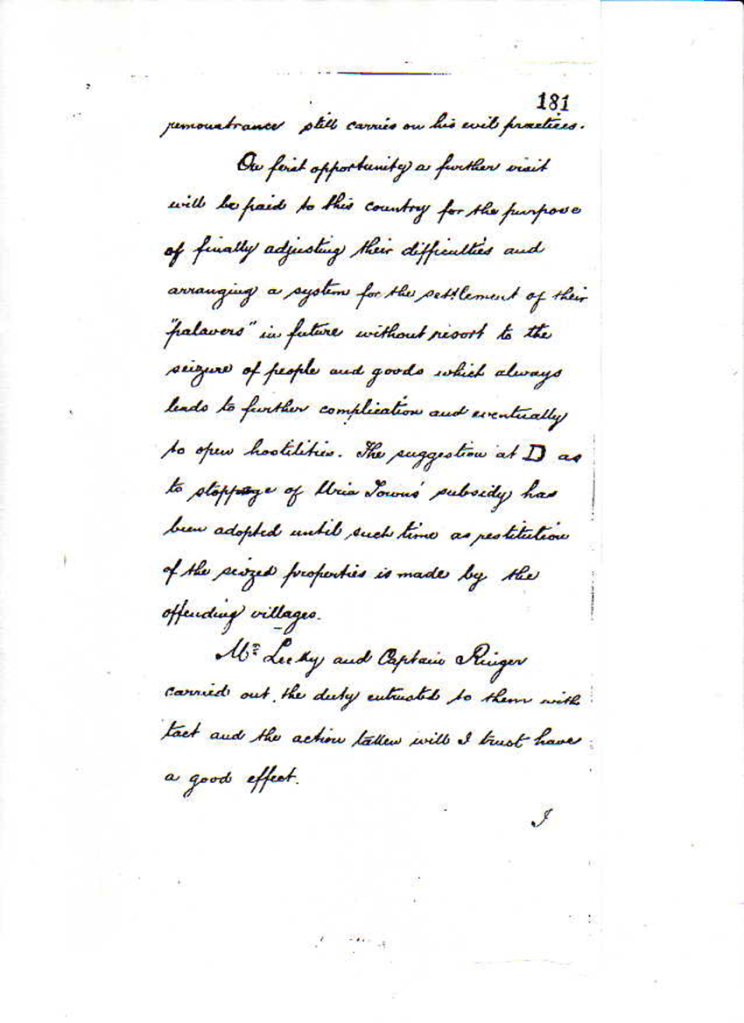 181
remonstrance still carries on his evil practices.
On first opportunity a further visit
will be paid to this country for the purpose
of finally adjusting their difficulties and
arranging a system for the settlement of their
"palavers" in future without resort to the
seizure of people and goods which always
leads to further complication and eventually
to open hostilities. The suggestion at D as
to stoppage of Uria Towns' subsidy has
been adopted until such time as restitution
of the seized properties is made by the
offending villages.
Mr Lecky and Captain Ringer
carried out the duty entrusted to them with
tact and the action taken will I trust have
a good effect.
I